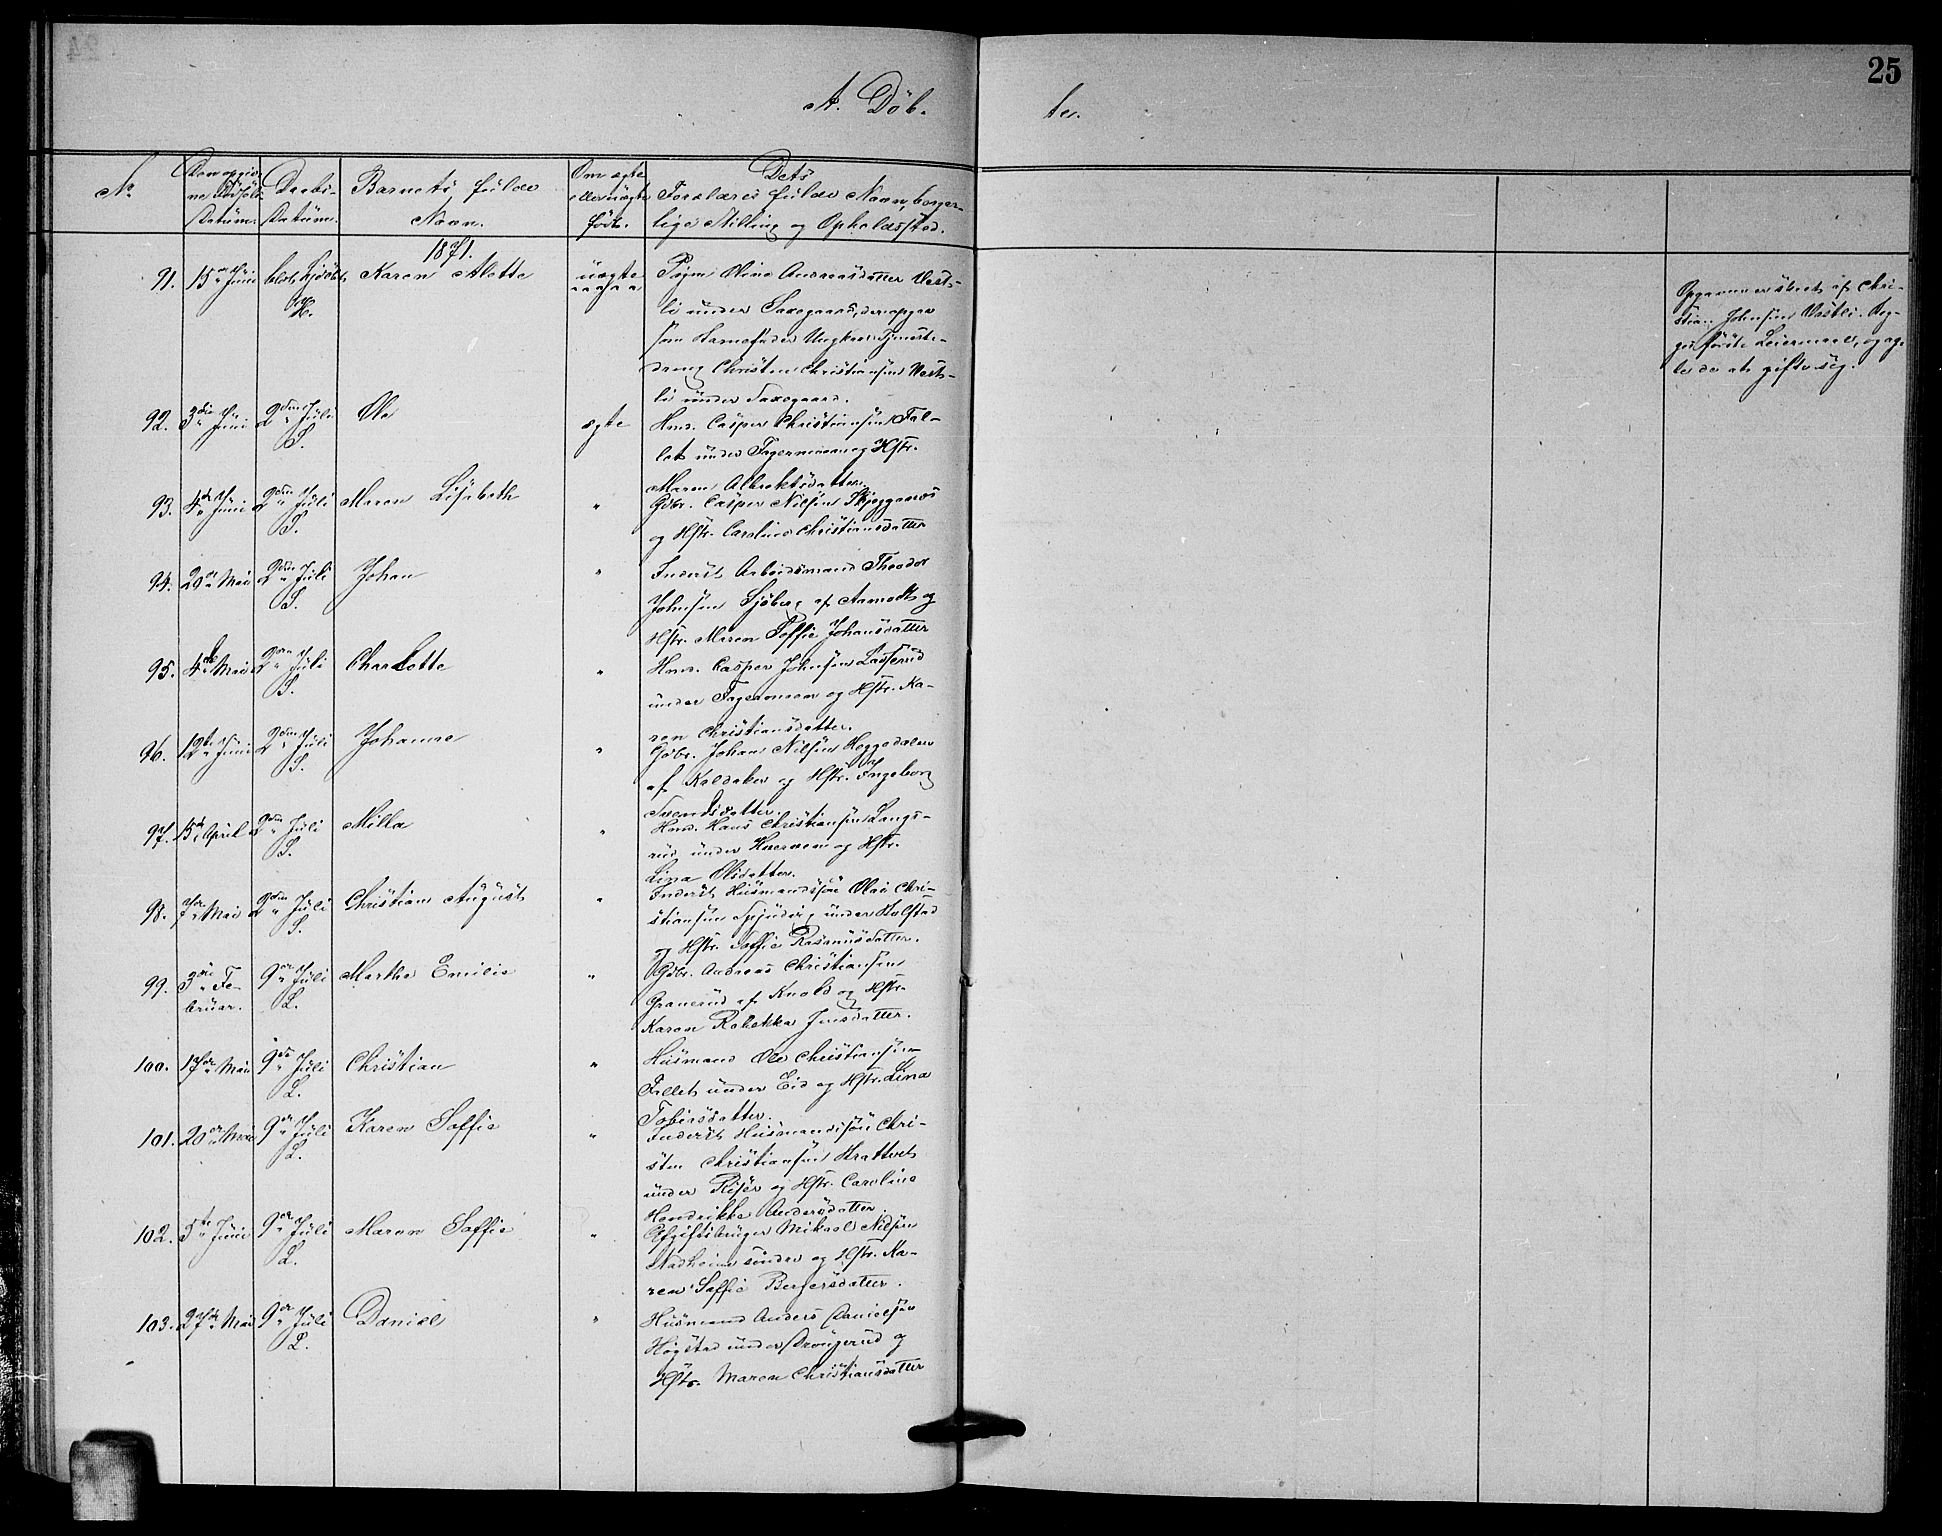 25
A. Döb-
ter.
No
Den opgiv-
ne Födsels
Datum.
Daabs-
Datum.
Barnets fulde
Navn.
Om ægte
eller uægte
født.
Dets
Forældres fulde Navn, borger-
lige Stilling og Opholdssted.
1871.
91. 15de Juni Karen Alette uægte Pigen Oline Andreasdatter Vest-
li under Saxegaard, der opgav
som Barnefader Ungkarl Tjeneste-
dreng Christen Christiansen Vest-
li under Saxegaard.
Opgaven er skreet af Chri-
stian Johnsen Vestli. Beg-
ges første Leiermaal, og ag-
te de at gifte sig.
92. 3die Juni 2den Juli S. Ole ægte Hmd. Casper Christiansen Fal-
let under Fagerneen og Hstr.
Maren Albrektsdatter.
93. 4de Juni 2den Juli S. Maren Lisabeth " Gdbr. Casper Nilsen Skjeggerud
og Hstr. Caroline Christiansdatter
94. 20de Mai 2den Juli S. Johan " Inderst Arbeidsmand Theodor
Johnsen Sjöberg af Aamodt og
Hstr. Maren Soffie Johansdatter
95. 4de Mai 2den Juli S. Charlotte " Hmd. Casper Johnsen Lasserud
under Fagerneen og Hstr. Ka-
ren Christiansdatter.
96. 12te Juni 2den Juli S. Johanne " Gdbr. Johan Nilsen Heggedalen
af Kaldaker og Hstr. Ingeborg
Svendsdatter.
97. 15de April 2den Juli S. Milla " Hmd. Hans Christiansen Langs-
rud under Kvernem og Hstr.
Lina Olsdatter.
98. 7de Mai 2den Juli S. Christian August " Inderst Husmandssön Olai Chri-
stiansen under Holstad
og Hstr. Soffie Rasmusdatter.
99. 3die Fe-
bruar. 9de Juli L. Marthe Emilie " Gdbr. Andreas Christiansen
Granerud af Knold og Hstr.
Karen Rebekka Jensdatter.
100. 17de Mai 9de Juli L. Christian " Husmand Ole Christiansen
Fallet under Eid og Hstr. Lina
Tobiasdatter.
101. 20de Mai 9de Juli L. Karen Soffie " Inderst Husmandssön Chri-
sten Christiansen Krattvet
under Riser og Hstr. Caroline
Hendrikke Andersdatter.
102. 5te Juni 9de Juli L. Maren Soffie " Afgiftsbruger Mikael Nilsen
Stadheim söndre og Hstr. Ka-
ren Soffie Bergersdatter.
103. 27de Mai 9de Juli L. Daniel " Husmand Anders Danielsen
Høgstad under Drougerud og
Hstr. Maren Christiansdatter